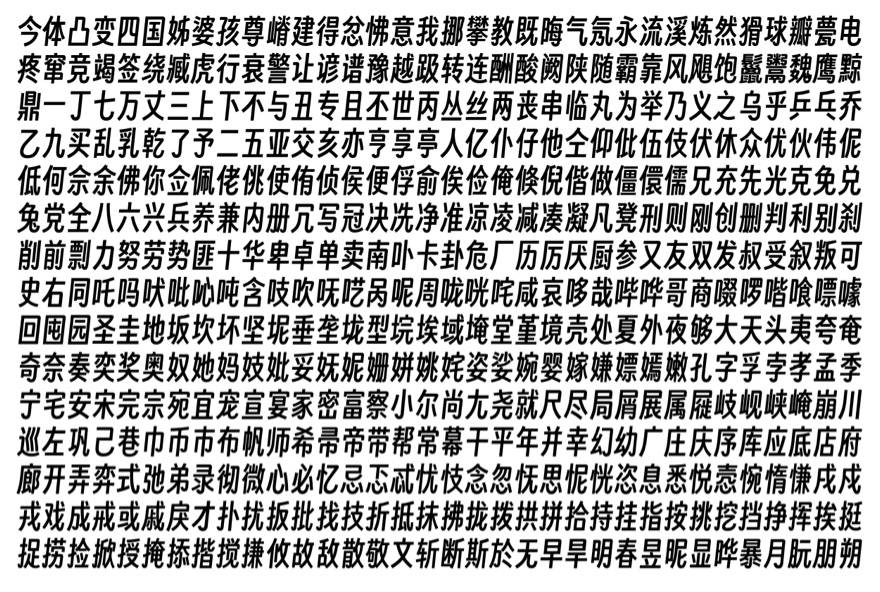 今体凸变四国姊婆孩尊嵴建得忿怫意我挪攀教既晦气氛永流溪炼然猾球瓣甍电
疼窜竞竭签绕臧虎行哀警让谚谱豫越趿转连酬酸阙陕随霸靠风飓饱鬣鸞魏鹰黥
鼎一丁七万丈三上下不与丑专且丕世丙丛丝两丧串临丸为举乃义之乌乎乒乓乔
乙九买乱乳乾了予二五亚交亥亦亨享亭人亿仆仔他仝仰仳伍伎伏休众优伙伟伲
低何佘余佛你佥佩佬佻使侑侦侯便俘俞俟俭俺倏倪偕做僵儇儒兄充先光克免兑
兔党全八六兴兵养兼内册冗写冠决冼净准凉凌减凑凝凡凳刑则刚创删判利别刹
削前剽力努劳势匪十华卑卓单卖南卟卡卦危厂历厉厌厨参又友双发叔受叙叛可
史右同吒吗吠吡吣吨含吱吹呒呓呙呢周咙咣咤咸哀哆哉哔哗哥商啜啰喈喰嘌噱
回囤园圣圭地坂坎坏坚坭垂垄垅型垸埃域埯堂堇境壳处夏外夜够大天头夷夸奄
奇奈奏奕奖奥奴她妈妓妣妥妩妮姗姘姚姹姿娑婉婴嫁嫌嫖嫣嫩孔字孚孛孝孟季
宁宅安宋完宗宛宜宠宣宴家密富察小尔尚尢尧就尺尽局屑展属屣歧岘峡崦崩川
巡左巩己巷巾币市布帆师希帚帝带帮常幕干平年并幸幻幼广庄庆序库应底店府
廊开弄弈式弛弟录彻微心必忆忌忑忒忧忮念忽怃思怩恍恣息悉悦悫惋惰慊戌戍
戎戏成戒或戚戾才扑扰扳批找技折抵抹拂拢拨拱拼拾持挂指按挑挖挡挣挥挨挺
捉捞捡掀授掩掭揩搅搛攸故敌散敬文斩断斯於无早旱明春昱昵显晔暴月朊朋朔